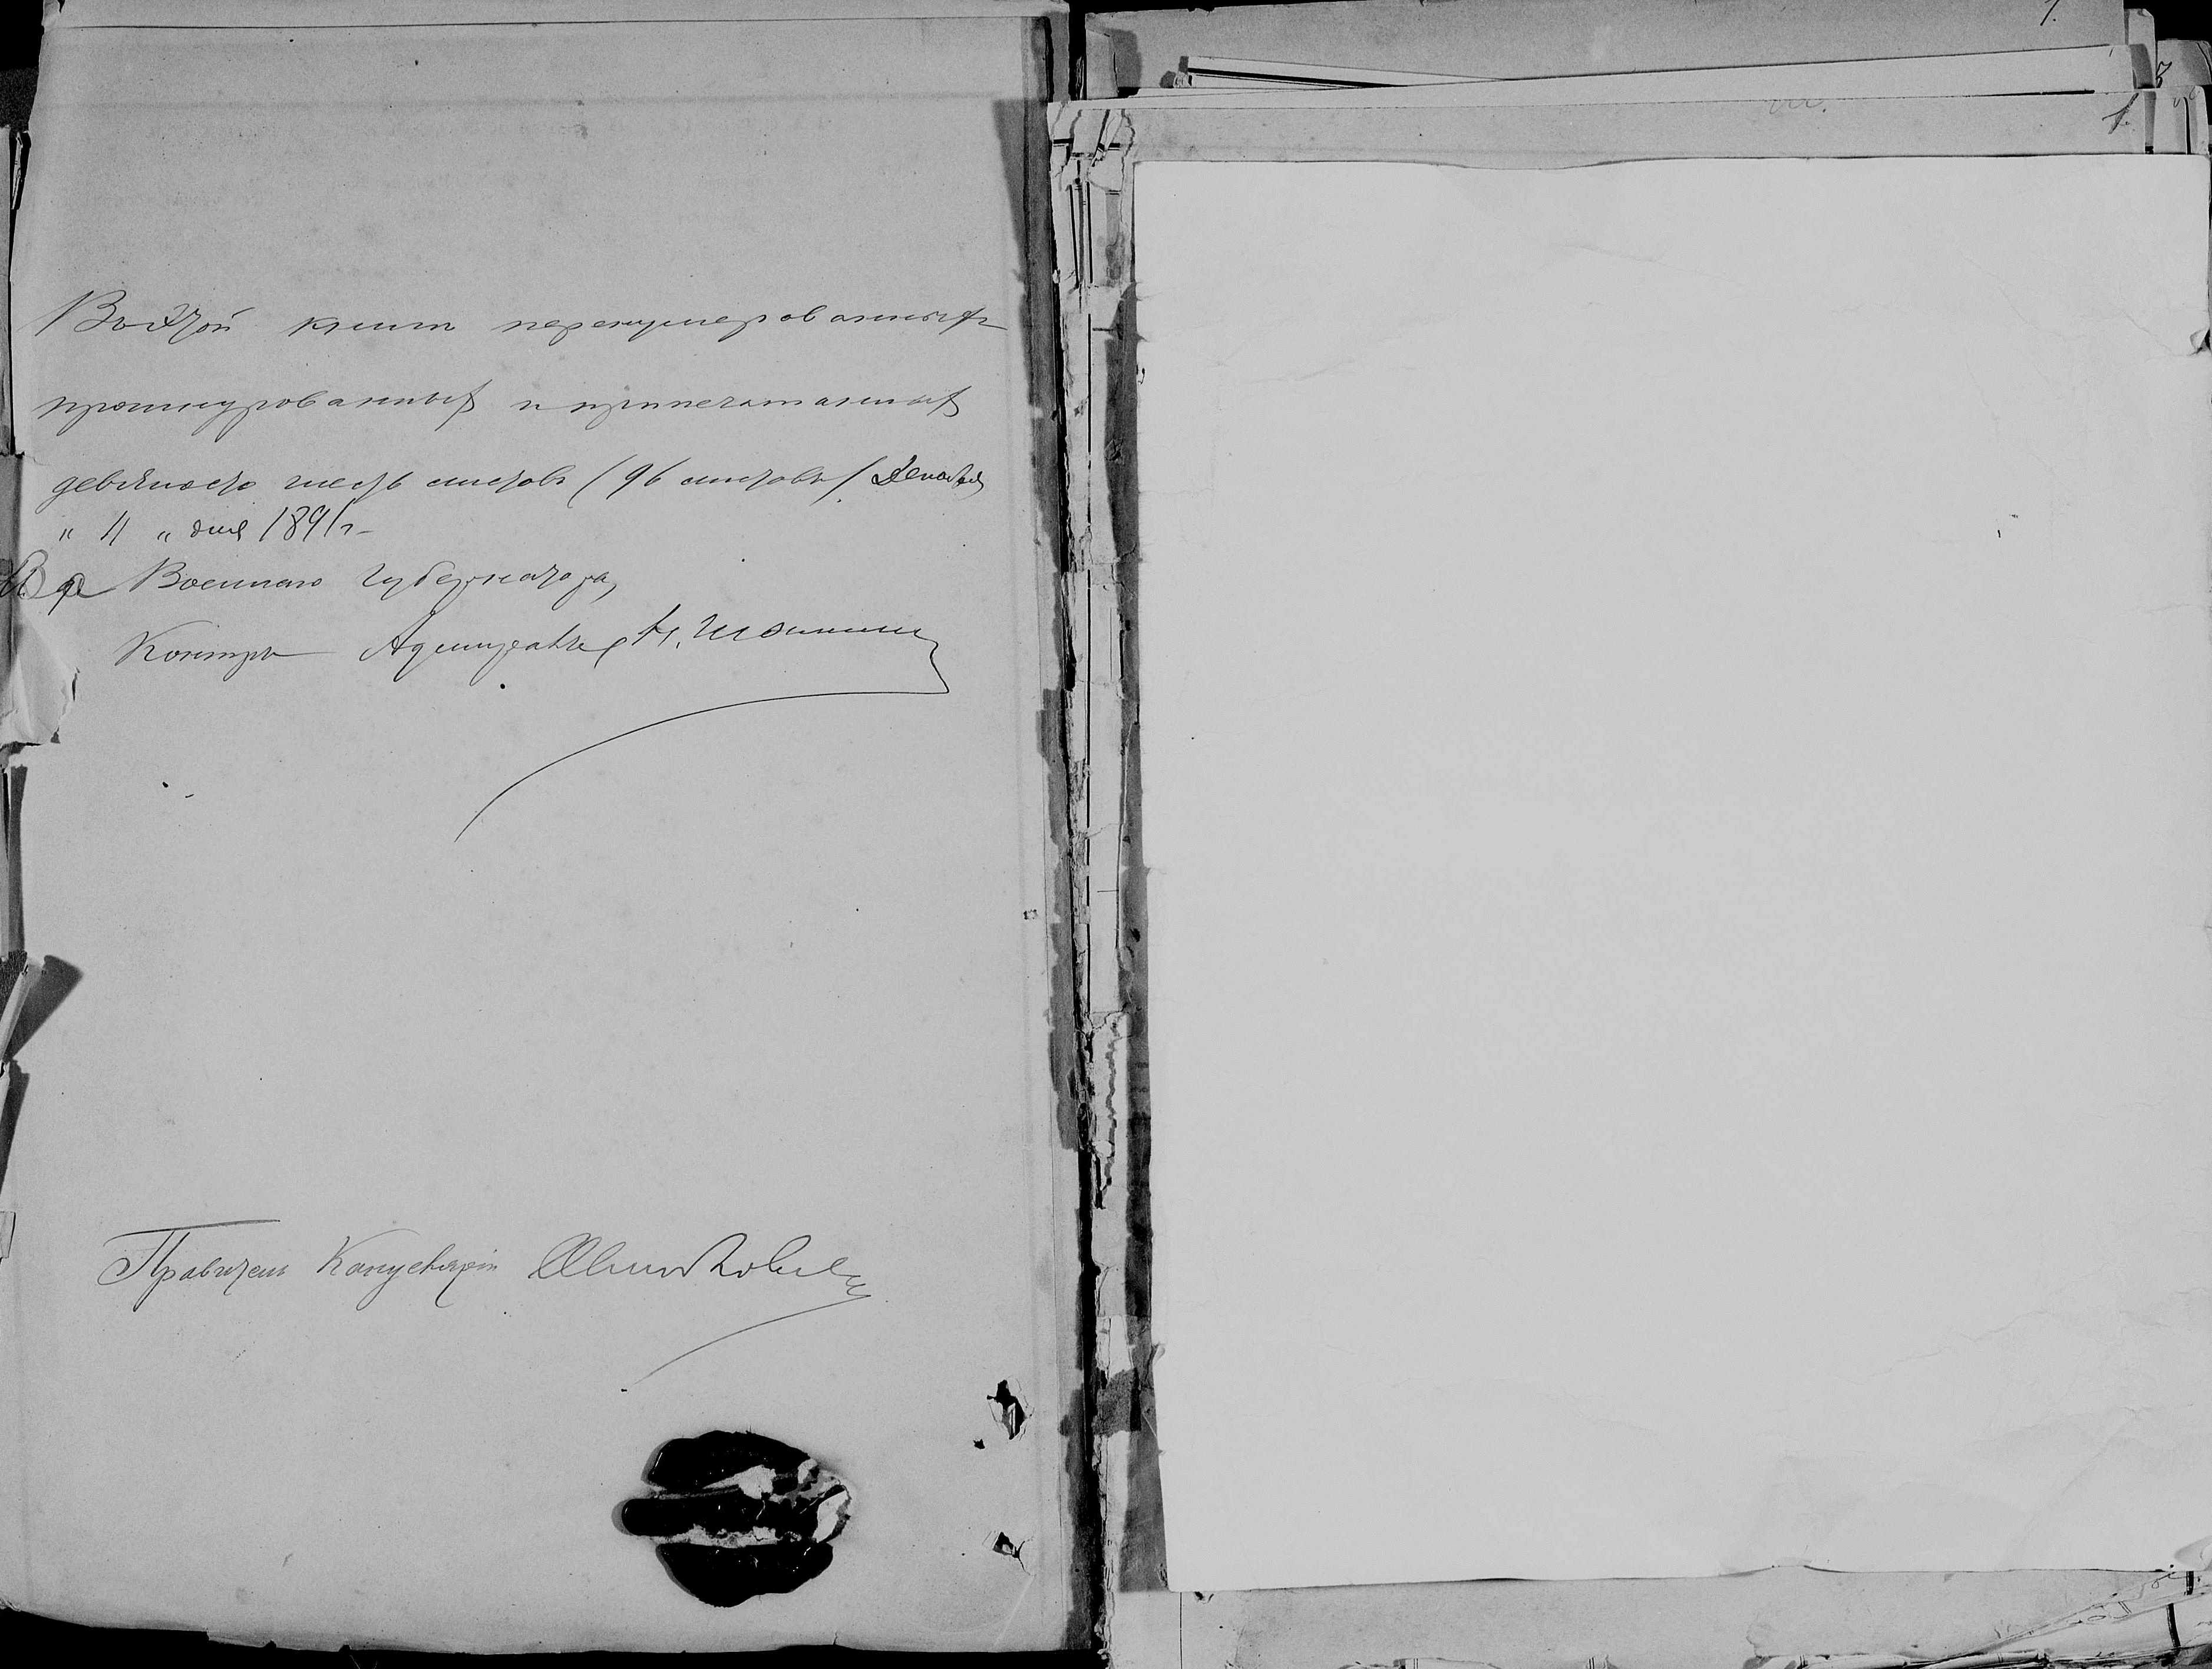 Въ этой книгѣ перенумерованныхъ
прошнурованныхъ и припечатанныхъ
девяносто шесть листовъ (96 листовъ) Декабря
" 4 " дня 1891 г.
Военнаго Губернатора,
Контръ Адмиралъ
Правитель Канцеляріи
1.
1.